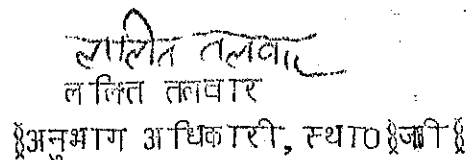 ललित तलवार
ललित तलवार
§अनुभाग अधिकारी, स्था0§जी§